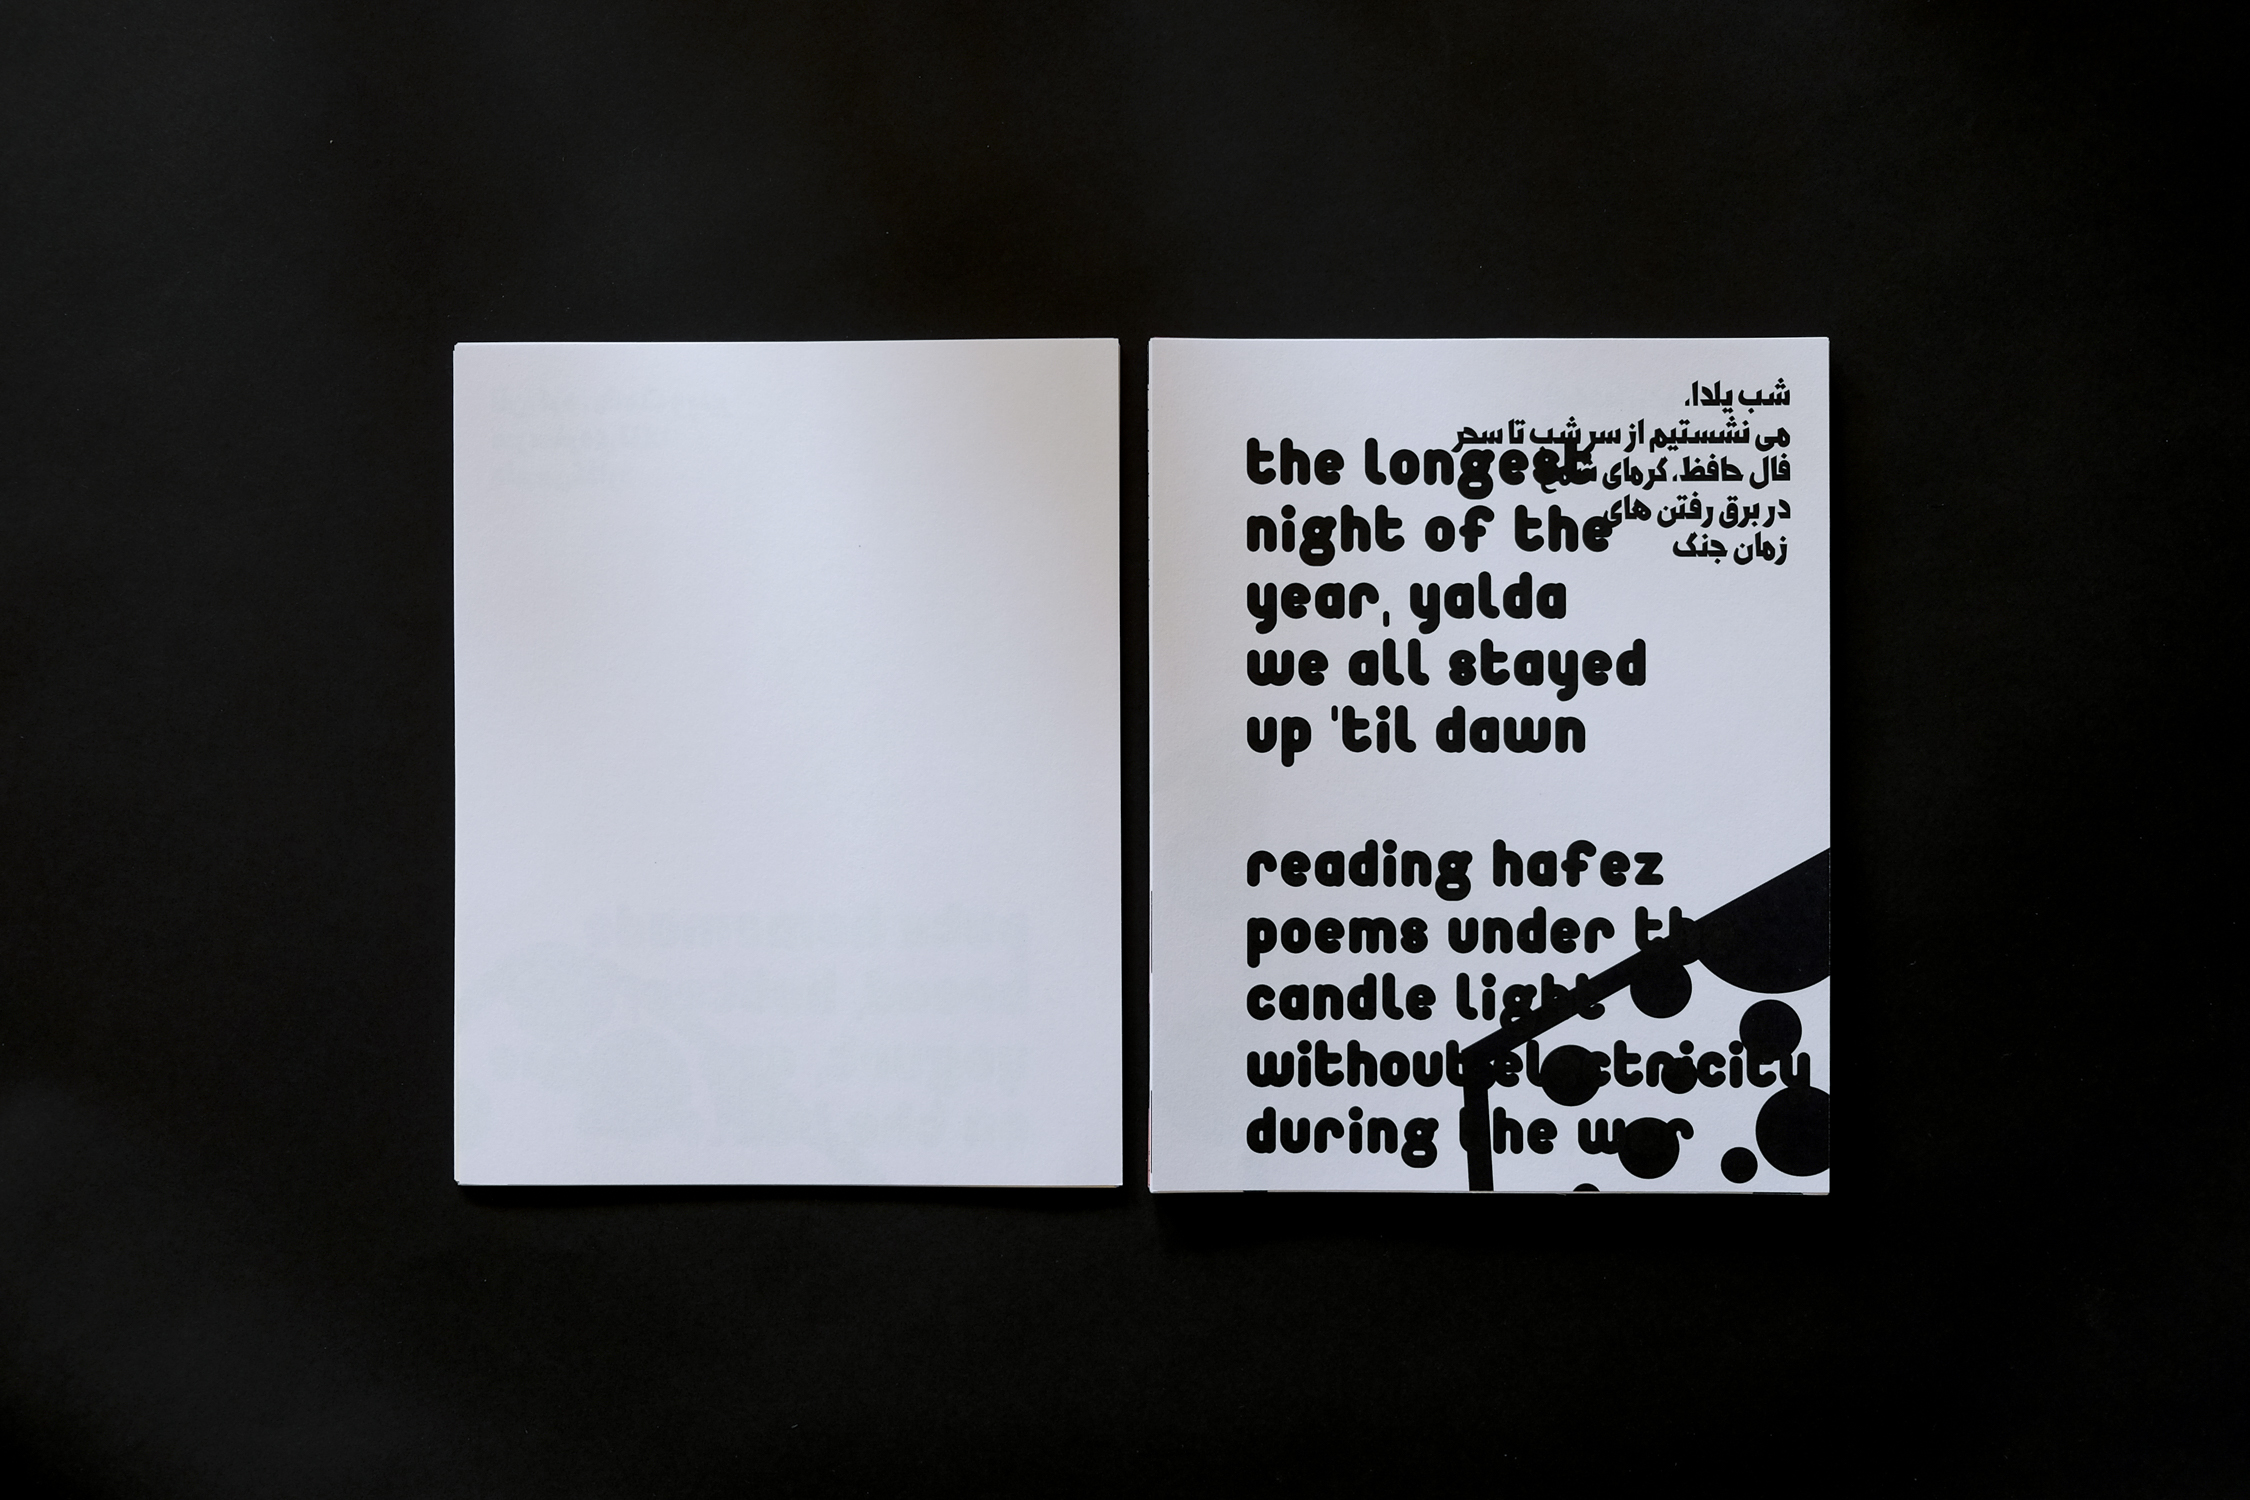 شب یلدا،
می نشستیم از سر شب تا سحر
فال حافظ، گرمای شمع
در برق رفتن های
زمان جنگ
the longest
night of the
year, yalda
we all stayed
up 'til dawn
reading hafez
poems under the
candle light
without electricity
during the war